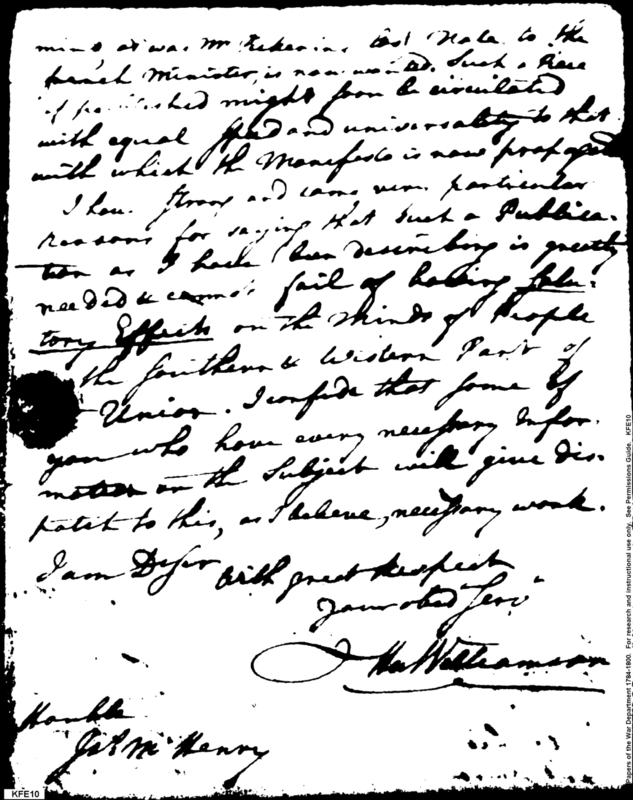 mind, as was Mr Pickering last Note to the
french Minister, is now wanted. Such a Piece
if published might soon be circulated
with equal speed and universality to that
with which the Manifesto is now propagated
I have strong and some very particular
reasons for saying that such a Publica-
tion as I have been describing is greatly
needed & cannot fail of having Salu-
tory Effects on the Minds of People
the Southern & Western Parts of
Union. I confide that some of
you who have every necessary Infor-
mation on the Subject will give dis-
patch to this, as I believe, necessary work.
I am Dr Sir
with great Respect
your obed Serv
Hu Williamson
Honble
Jas McHenry
KFE10
Papers of the War Department 1784-1800. For research and instructional use only. See Permissions Guide. KFE10